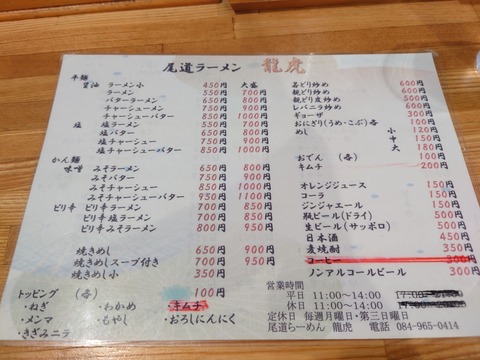 尾道ラーメン 龍虎
平麺 大盛
醤油 ラーメン小 450円
ラーメン 550円 700円
バターラーメン 650円 800円
チャーシューメン 750円 900円
チャーシューバター 850円 1000円
塩 塩ラーメン 550円 700円
塩バター 650円 800円
塩チャーシュー 750円 900円
塩チャーシューバター 850円 1000円
かん麺
味噌 みそラーメン 650円 800円
みそバター 750円 900円
みそチャーシュー 850円 1000円
みそチャーシューバター 950円 1100円
ピリ辛 ピリ辛ラーメン 700円 850円
ピリ辛塩ラーメン 700円 850円
ピリ辛みそラーメン 800円 950円
焼きめし 650円 900円
焼きめしスープ付き 700円 950円
焼きめし小 350円
トッピング (各) 100円
・ねぎ ・わかめ ・キムチ
・メンマ ・もやし ・おろしにんにく
・きざみニラ
若どり炒め 600円
親どり炒め 600円
親どり皮炒め 500円
レバニラ炒め 600円
ギョーザ 300円
おにぎり(うめ・こぶ) 各 100円
めし 小 120円
中 150円
大 180円
おでん (各) 100円
キムチ 200円
オレンジジュース 150円
コーラ 150円
ジンジャエール 150円
瓶ビール(ドライ) 500円
生ビール(サッポロ) 500円
日本酒 450円
麦焼酎 350円
コーヒー 300円
ノンアルコールビール 300円
営業時間
平日 11:00〜14:00
休日 11:00〜14:00
定休日 毎週月曜日・第三日曜日
尾道らーめん 龍虎 電話 084-965-0414